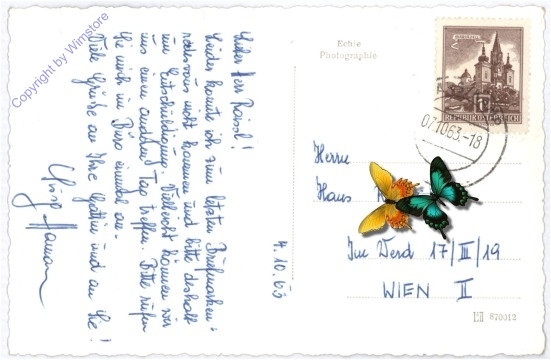 Copyright by Wimstore
Lieber Herr Raisel!
Leider konnte ich zum letzten Briefmarken-
rendezvous nicht kommen und bitte deshalb
um Entschuldigung. Vielleicht können wir
uns einen anderen Tag treffen. Bitte rufen
Sie mich im Büro einmal an.
Viele Grüße an Ihre Gattin und an Sie!
4.10.63
Echte
Photographie
REPUBLIK ÖSTERREICH
07.10.63.-18
Herrn
Hans
Im Werd 17/III/19
WIEN II
870312